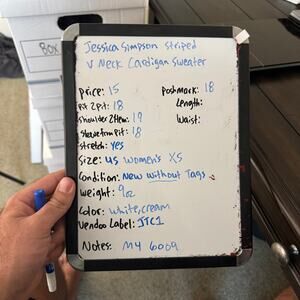 Jessica Simpson Striped
V Neck Cardigan Sweater
Price: 15
Poshmark: 18
Pit 2 Pit: 18
Length:
Shoulder 2 Hem: 19
Waist:
Sleeve from Pit: 18
Stretch: Yes
Size: US Women's XS
Condition: New Without Tags
Weight: 9oz
Color: White, cream
Vendoo Label: JTC1
Notes: MY 6009
BOX